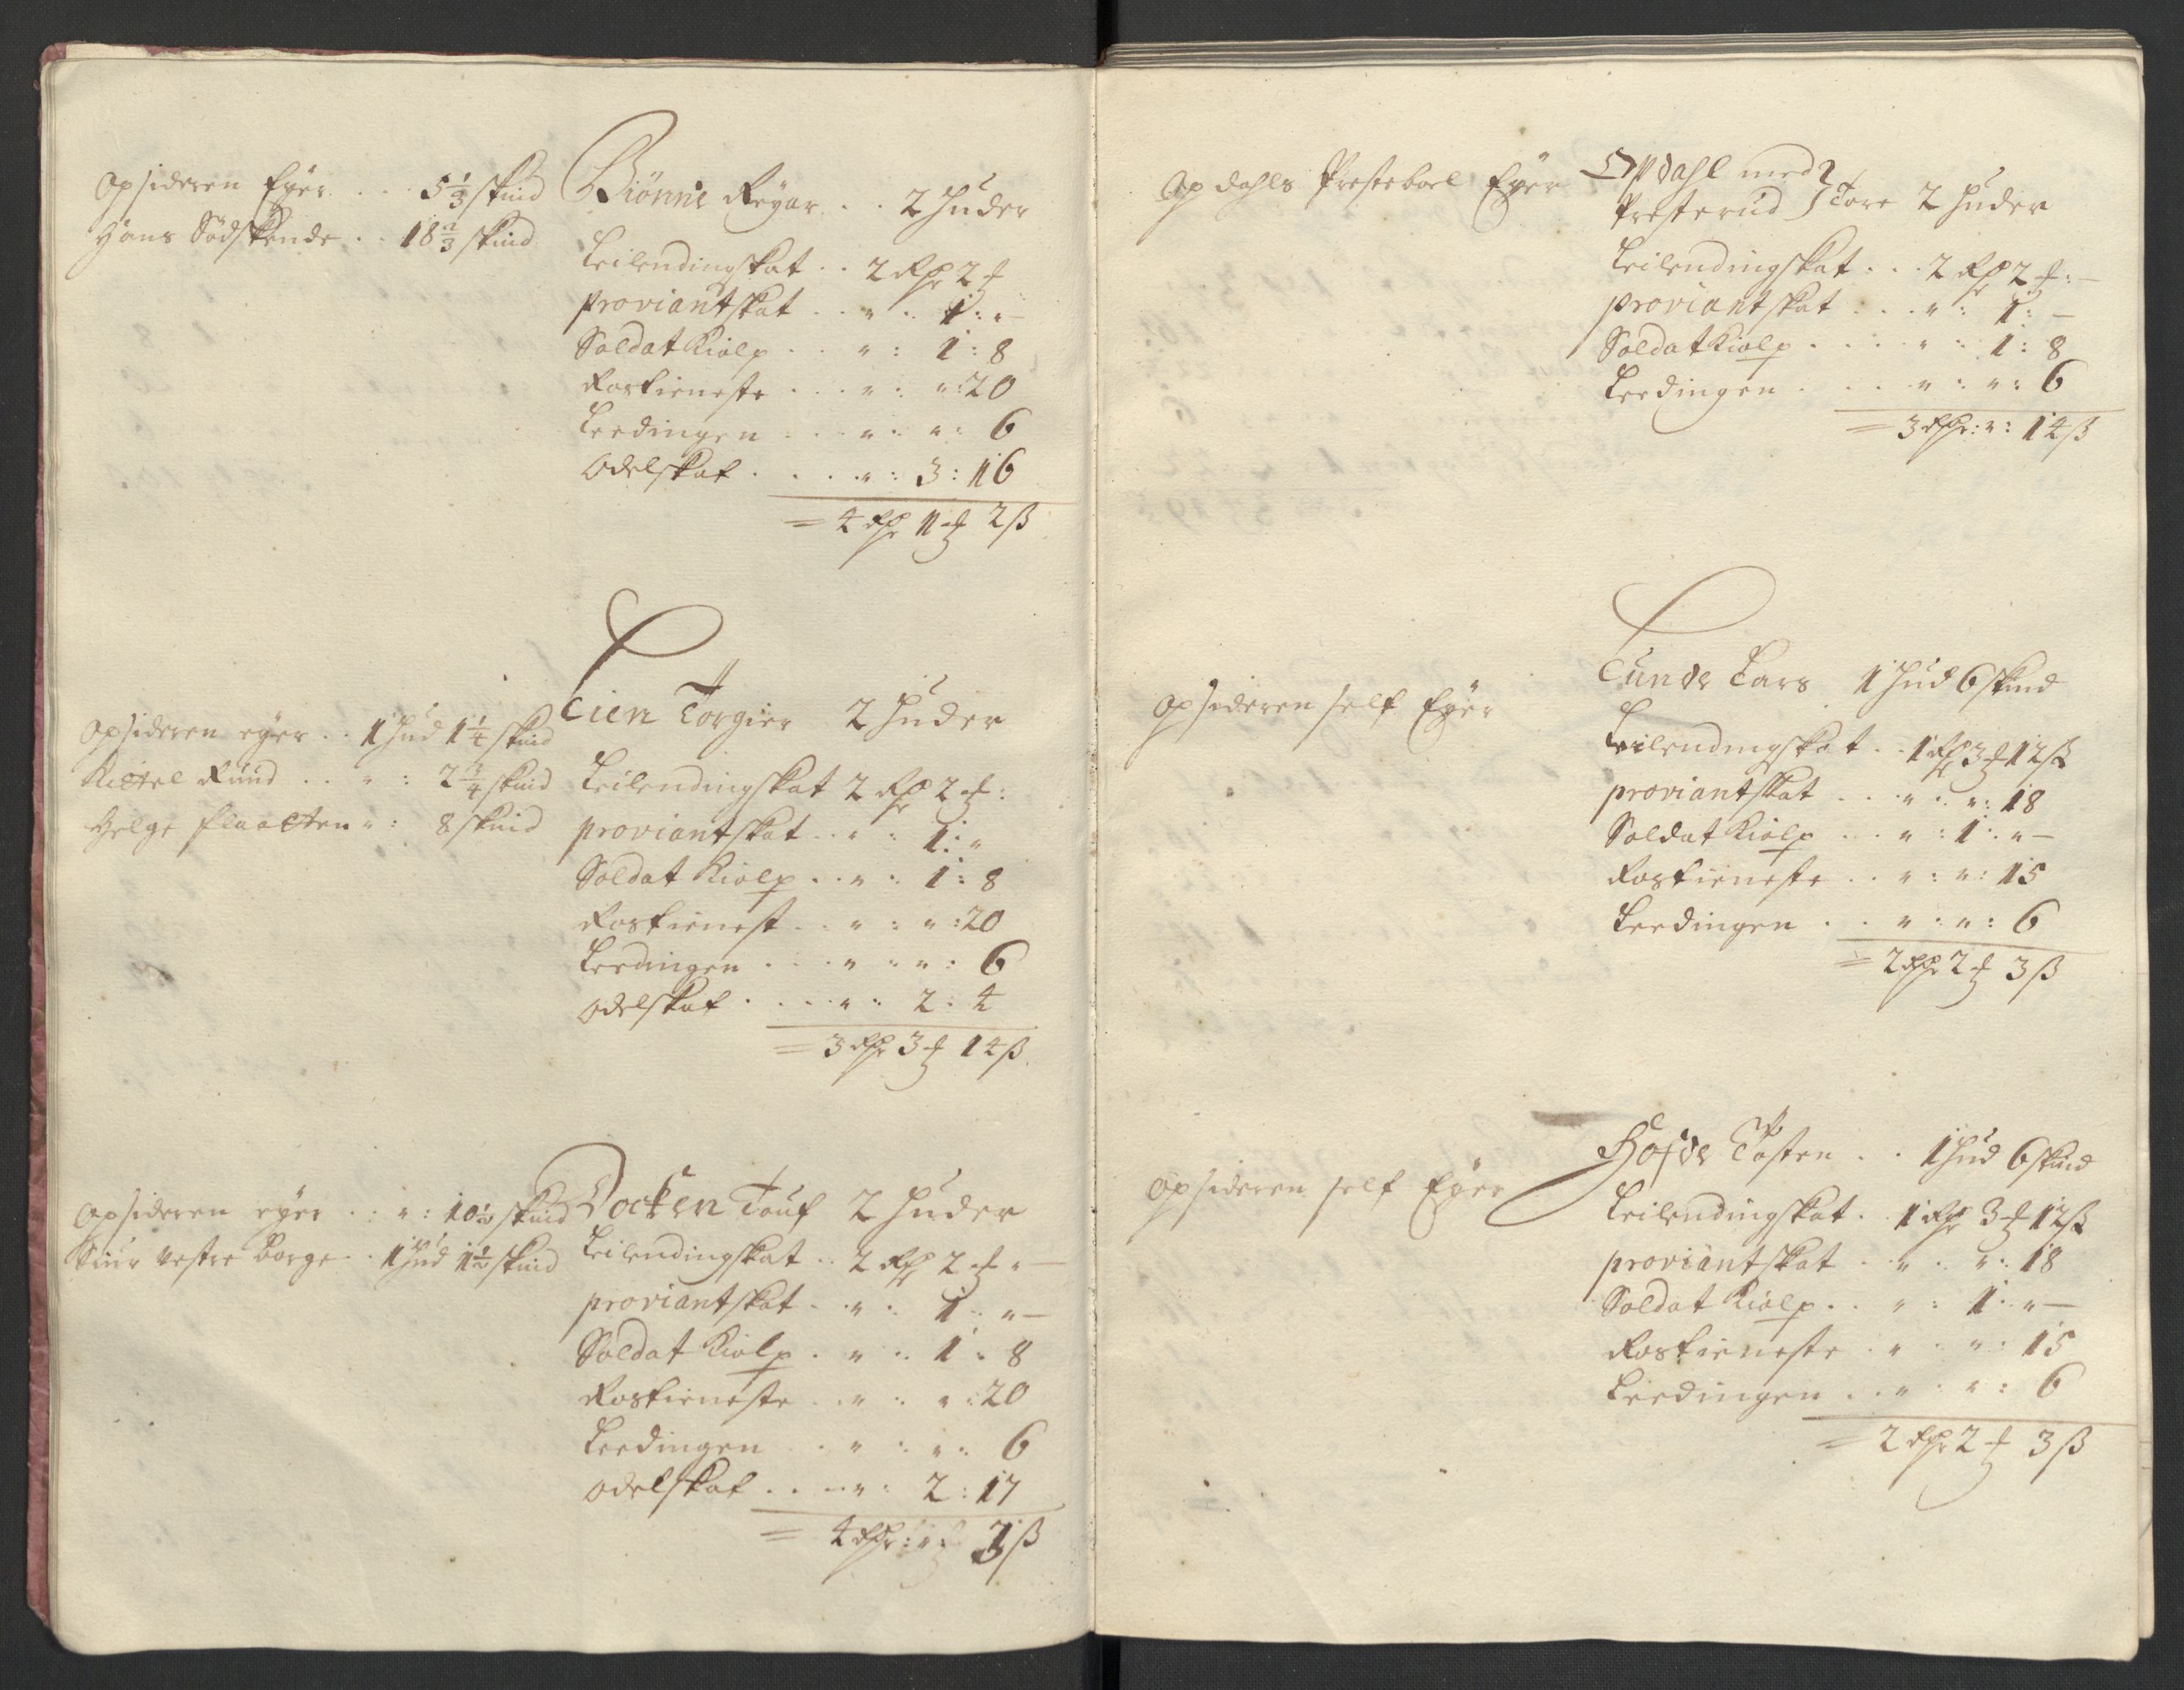 Opsideren Eyer . . . 5 1/3 skind
Hans Södskende . . 18 2/3 skind
Biönne Reyar . . 2 Huder
Leilendingskat . . 2 Rdr 2 ℔
proviantskat . . " : 1 : " –
Soldat Kiolp . . " : 1 : 8
Rostieneste . . . " : " : 20
Leedingen . . . " : " : 6
Odelskat . . . . " : 3 : 16
= 4 Rdr 1 ℔ 2 ß
Opsideren eyer . . 1 Hud 1 1/4 skind
Kittel Ruud . . " : 2 3/4 skind
Helge " : 8 skind
Lien Torgier 2 Huder
Leilendingskat 2 Rdr 2 ℔ :
proviantskat . . " : 1 : "
Soldat Kiolp . . " : 1 : 8
Rostienest . . " : " : 20
Leedingen . . . " : " : 6
Odelskat . . . . " : 2 : 4
= 3 Rdr 3 ℔ 14 ß
Opsideren eyer . . " : 10 1/2 skind
Siur vestre Borge . 1 Hud 1 1/2 skind
Docken Touf 2 Huder
Leilendingskat . . 2 Rdr 2 ℔ " –
proviantskat . . " : 1 : " –
Soldat Kiolp . " : 1 : 8
Rostieneste . . " : " : 20
Leedingen . . " : " : 6
Odelskat . . . " : 2 : 17
= 4 Rdr : " : 3 ß
Opdahls Presteboel Eyer
Opdahl med
Presterud } Tore 2 Huder
Leilendingskat . . . 2 Rdr 2 ℔ : –
proviantskat . . . " : 1 : –
Soldat Kiolp . . . . " : 1 : 8
Leedingen . . . " : " : 6
= 3 Rdr : " : 14 ß
Opsideren self Eyer
Lunde Lars 1 Hud 6 skind
Leilendingskat . . 1 Rdr 3 ℔ 12 ß
proviantskat . . . " : " : 18
Soldat Kiolp . . . " : 1 : " –
Rostieneste . . " : " : 15
Leedingen . . " : " : 6
= 2 Rdr 2 ℔ 3 ß
Opsideren self Eyer
Hofde Tosten . . 1 Hud 6 skind
Leilendingskat . . 1 Rdr 3 ℔ 12 ß
proviantskat . . " : " : 18
Soldat Kiolp . . " : 1 : " –
Rostieneste . " : " : 15
Leedingen . . " : " : 6
= 2 Rdr 2 ℔ 3 ß